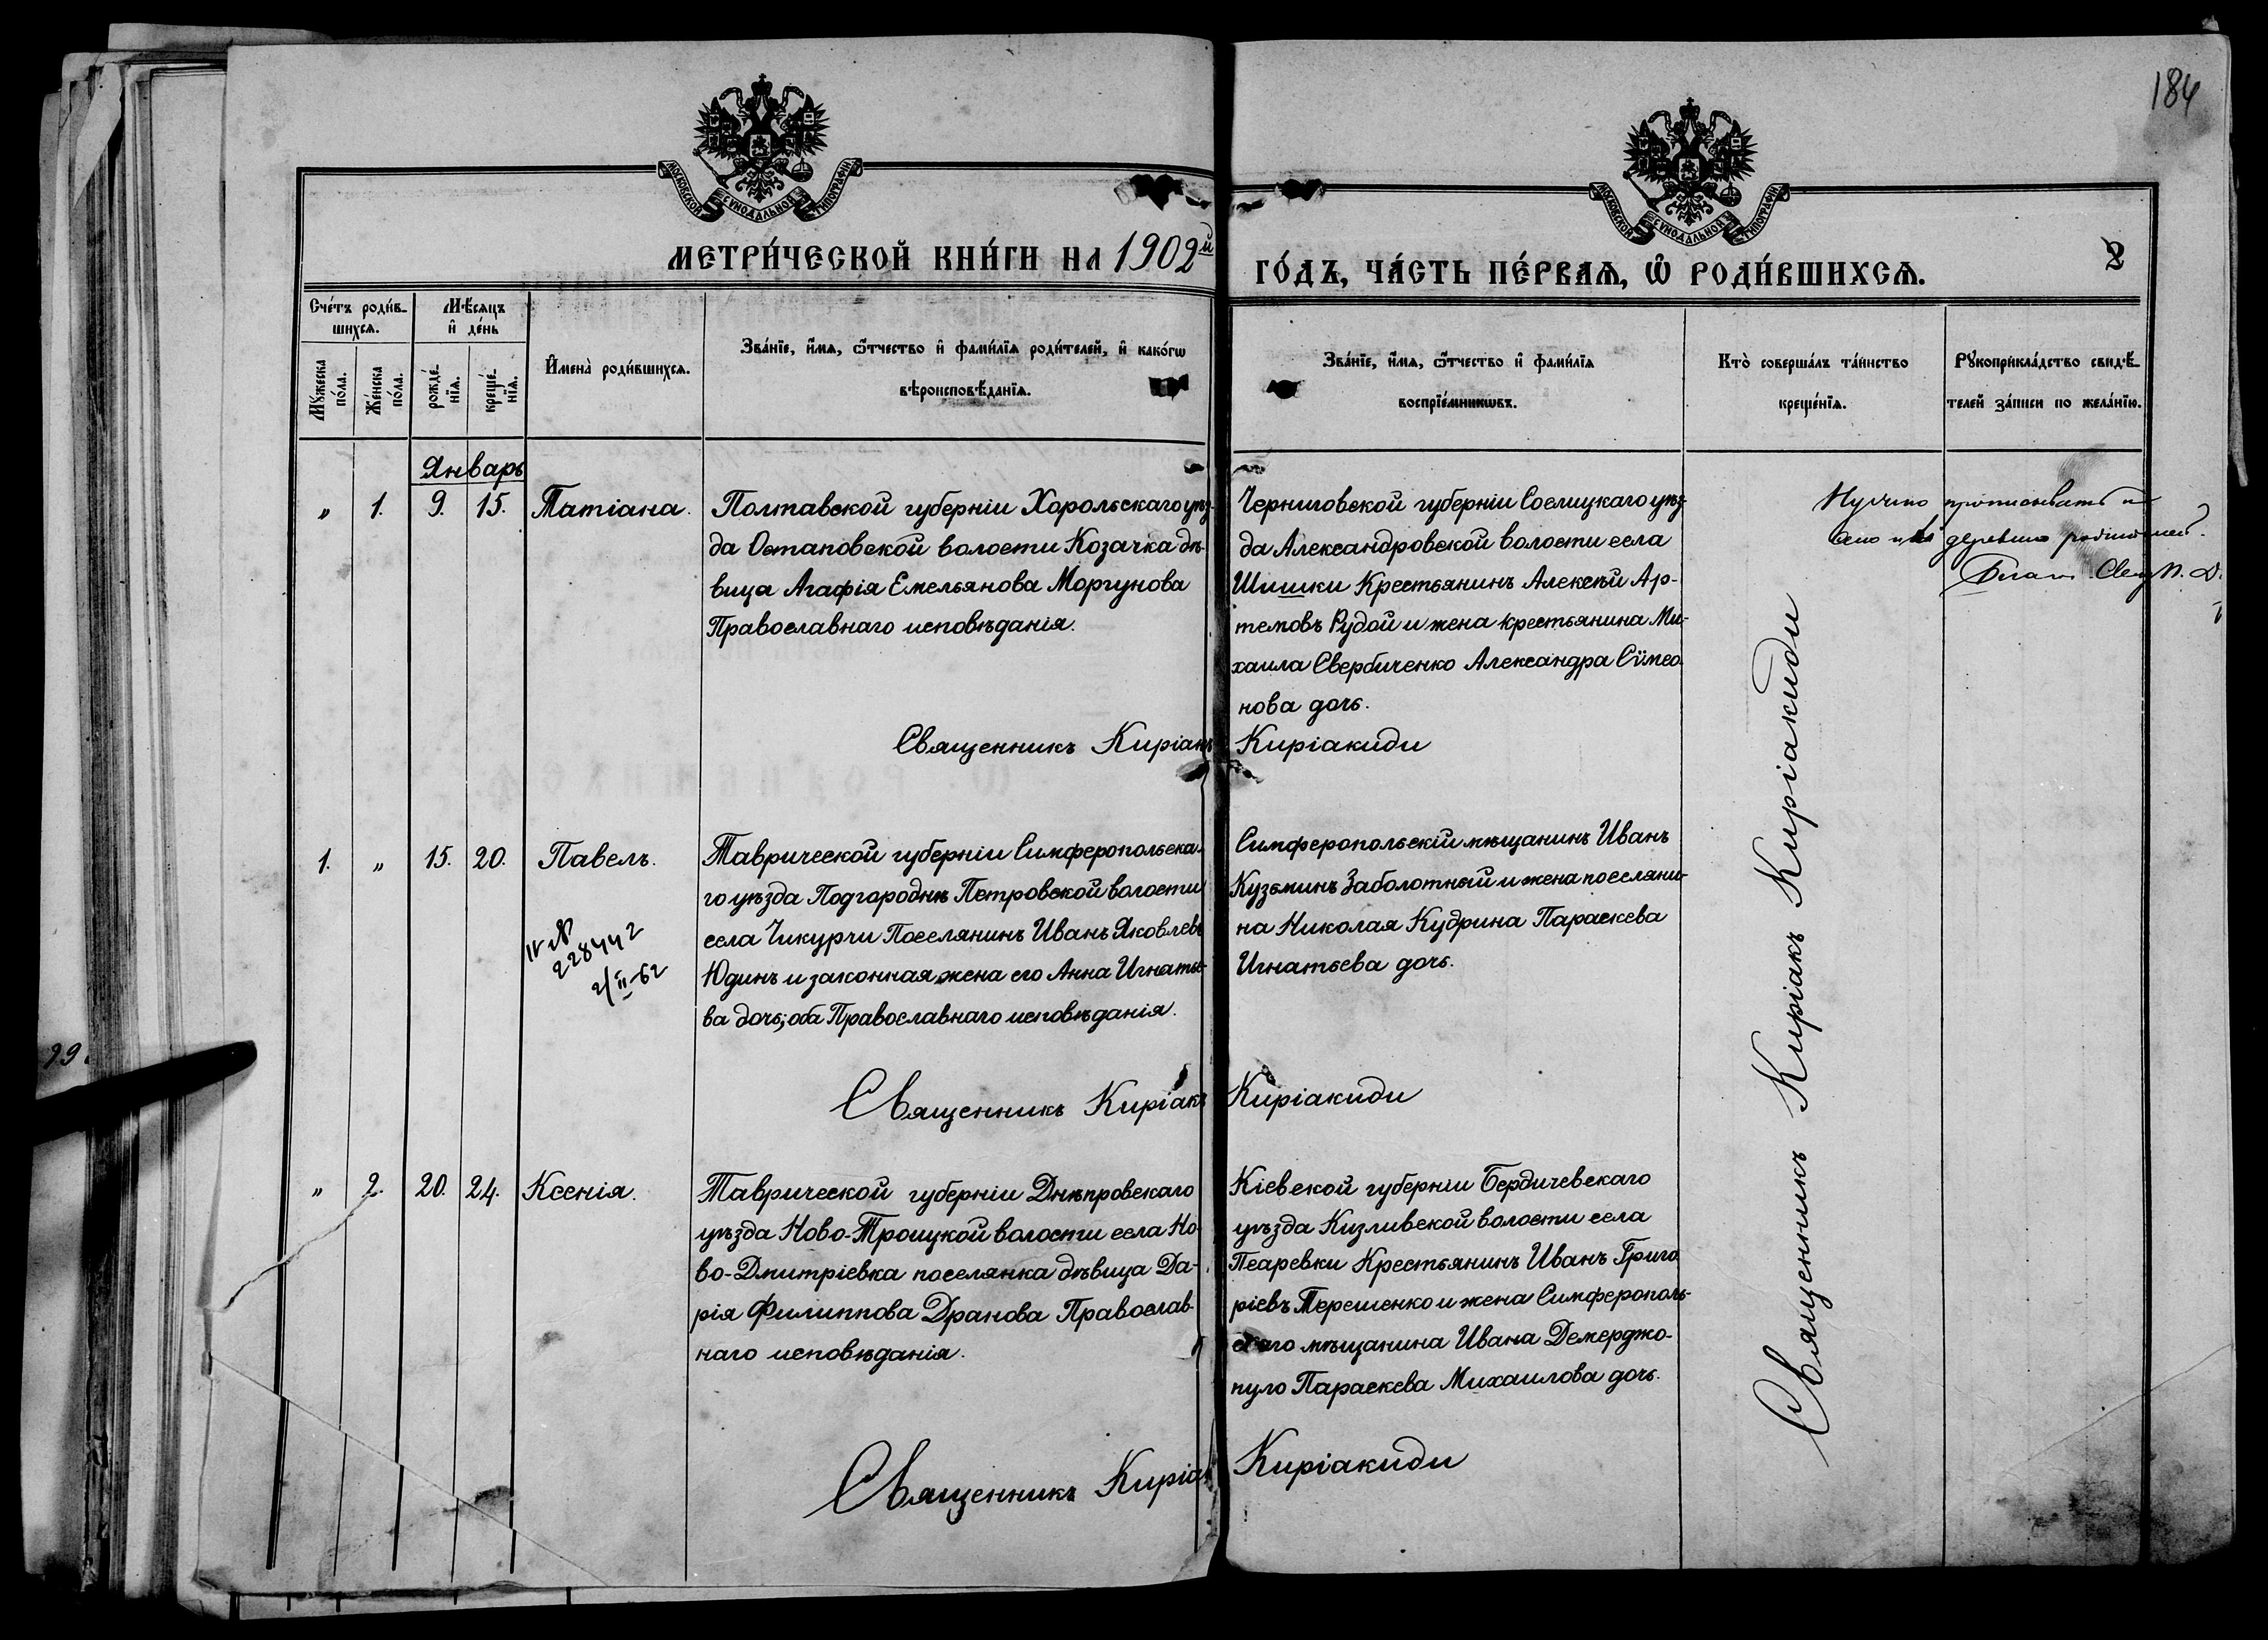 184
МОСКОВСКОЙ СѴНОДАЛЬНОЙ ТИПОГРАФІИ
МОСКОВСКОЙ СѴНОДАЛЬНОЙ ТИПОГРАФІИ
МЕТРИ́ЧЕСКОЙ КНИ́ГИ НА 1902й ГО́ДЪ, ЧА́СТЬ ПЕ́РВАѦ, Ѡ҆ РОДИ́ВШИХСѦ. 2
Сче́тъ роди́в-
шихсѧ.
Мꙋ́жеска
по́ла.
Же́нска
по́ла.
Мѣ́сяцъ
и҆ де́нь
рожде́-
нїѧ.
креще́-
нїѧ.
И҆мена̀ роди́вшихсѧ.
Зва́нїе, и҆́мѧ, ѻ҆́тчество и҆ фами́лїѧ роди́телей, и҆ како́гѡ
вѣроисповѣ́данїѧ.
Зва́нїе, и҆́мѧ, ѻ҆́тчество и҆ фами́лїѧ
воспрїе́мникѡвъ.
Кто̀ соверша́лъ та́инство
креще́нїѧ.
Рꙋкоприкла́дство свидѣ́-
телей за́писи по жела́нїю.
Январь
„ 1. 9. 15. Татіана.
Полтавской губерніи Хорольскаго уѣз-
да Остаповской волости Козачка дѣ-
вица Агафія Емельянова Моргунова
Православнаго исповѣданія.
Черниговской губерніи Сосницкаго уѣз-
да Александровской волости села
Шишки Крестьянинъ Алексѣй Ар-
темовъ Рудой и жена крестьянина Ми-
хаила Свербиченко Александра Сімео-
нова дочь.
Священникъ Киріакъ Киріакиди
деревню
1. „ 15. 20. Павелъ.
№
228442
2/II-62
Таврической губерніи Симферопольска-
го уѣзда Подгороднѣ Петровской волости
села Чикурчи Поселянинъ Иванъ Яковлевъ
Юдинъ и законная жена его Анна Игнатье-
ва дочь; оба Православнаго исповѣданія.
Симферопольскій мѣщанинъ Иванъ
Кузьминъ Заболотный и жена поселяни-
на Николая Кудрина Параскева
Игнатьева дочь.
Священникъ Киріакъ Киріакиди
„ 2. 20. 24. Ксенія.
Таврической губерніи Днѣпровскаго
уѣзда Ново-Троицкой волости села Но-
во-Дмитріевка поселянка дѣвица Да-
рія Филиппова Дранова Православ-
наго исповѣданія.
Кіевской губерніи Бердичевскаго
уѣзда Кизливской волости села
Псаревки Крестьянинъ Иванъ Григо
ріевъ Терешенко и жена Симферополь-
скаго мѣщанина Ивана Демерджо-
пуло Параскева Михаилова дочь.
Священникъ Киріакъ Киріакиди
Священникъ Киріакъ Киріакиди
99.